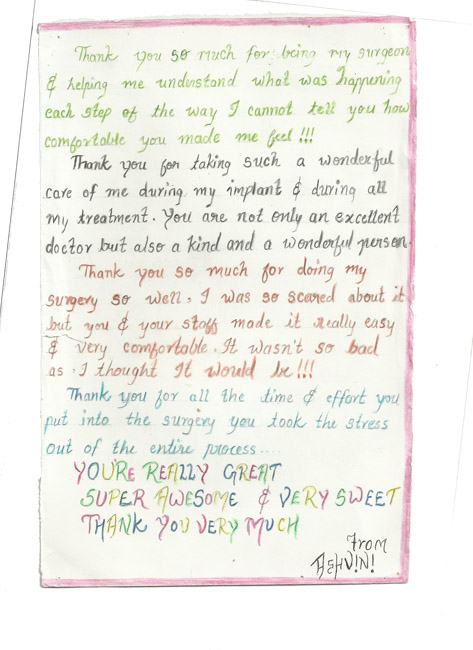 Thank you so much for being my surgeon
& helping me understand what was happening
each step of the way I cannot tell you how
comfortable you made me feel !!!
Thank you for taking such a wonderful
care of me during my implant & during all
my treatment. You are not only an excellent
doctor but also a kind and a wonderful person.
Thank you so much for doing my
surgery so well, I was so scared about it
but you & your staff made it really easy
& very comfortable. It wasn't so bad
as I thought It would be!!!
Thank you for all the time & effort you
put into the surgery you took the stress
out of the entire process....
YOU'RE REALLY GREAT
SUPER AWESOME & VERY SWEET
THANK YOU VERY MUCH
From
ASHVINI